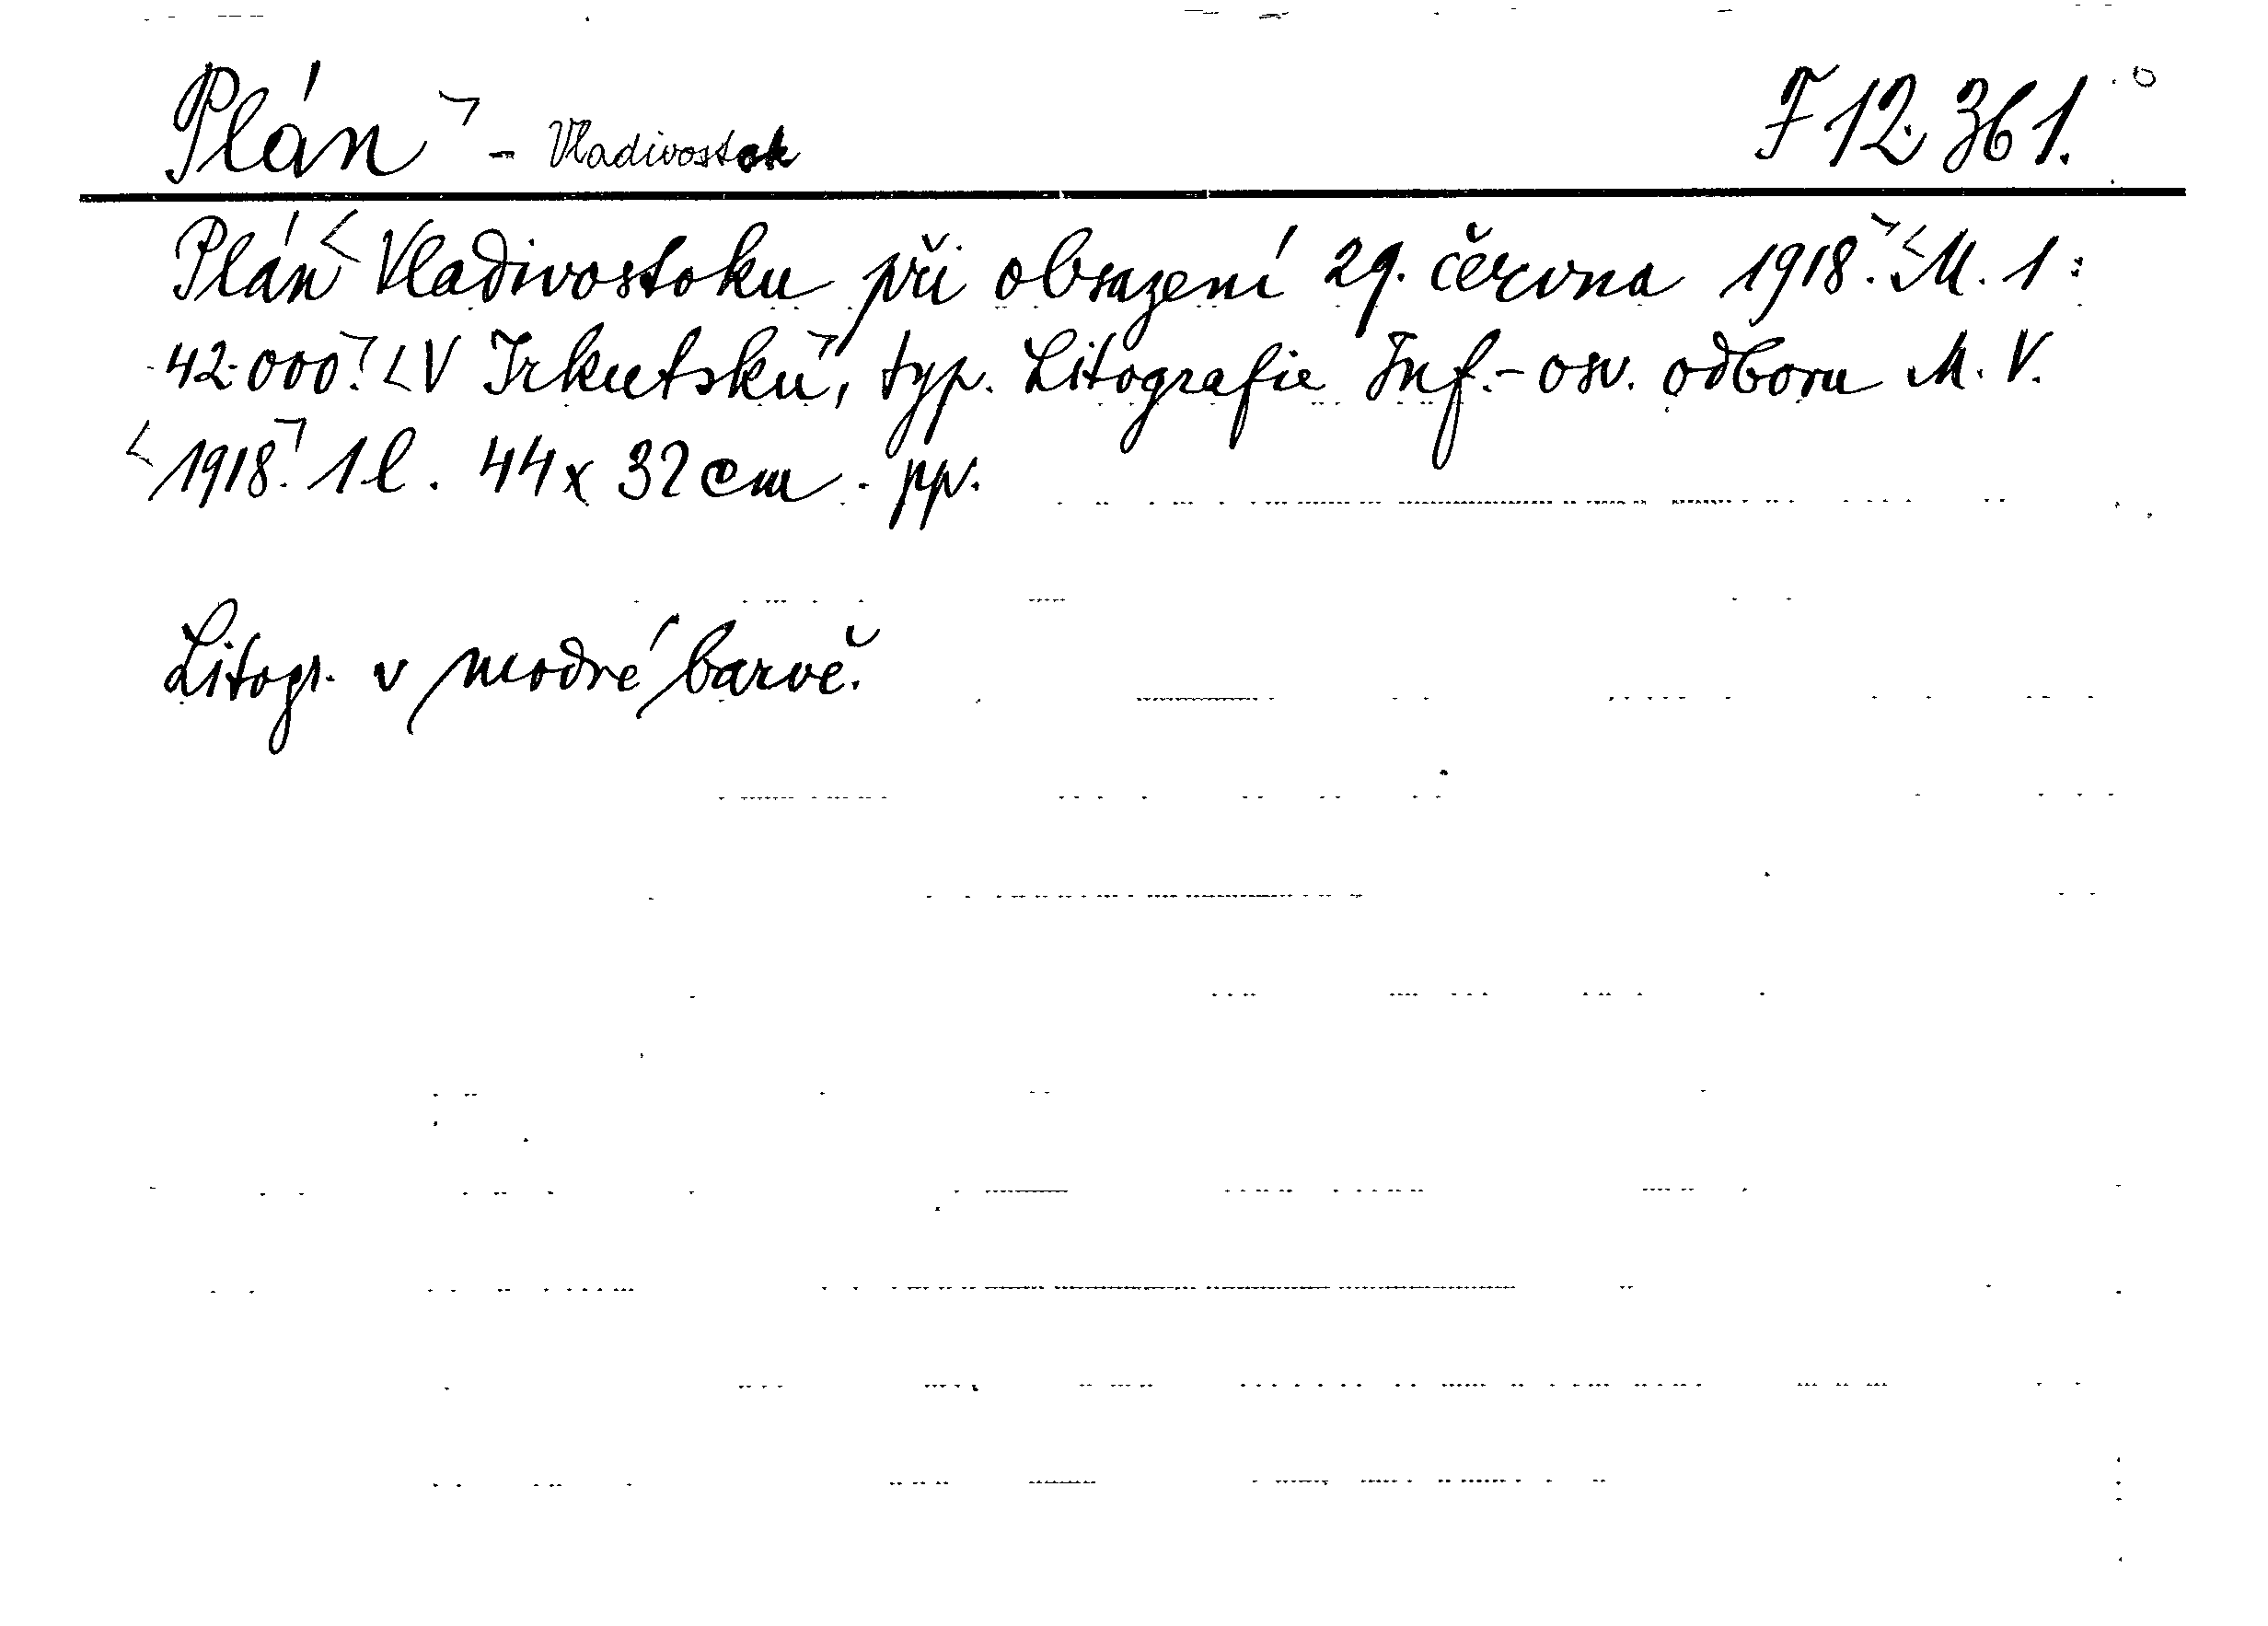 Plán - Vladivostok F 12.361.
Plán Vladivostoku při obsazení 29. června 1918. M. 1:
42.000. V Irkutsku, typ. Litografie Inf.-osv. odboru M. V.
1918. 1 l. 44 x 32 cm. pp.
Litogr. v modré barvě.